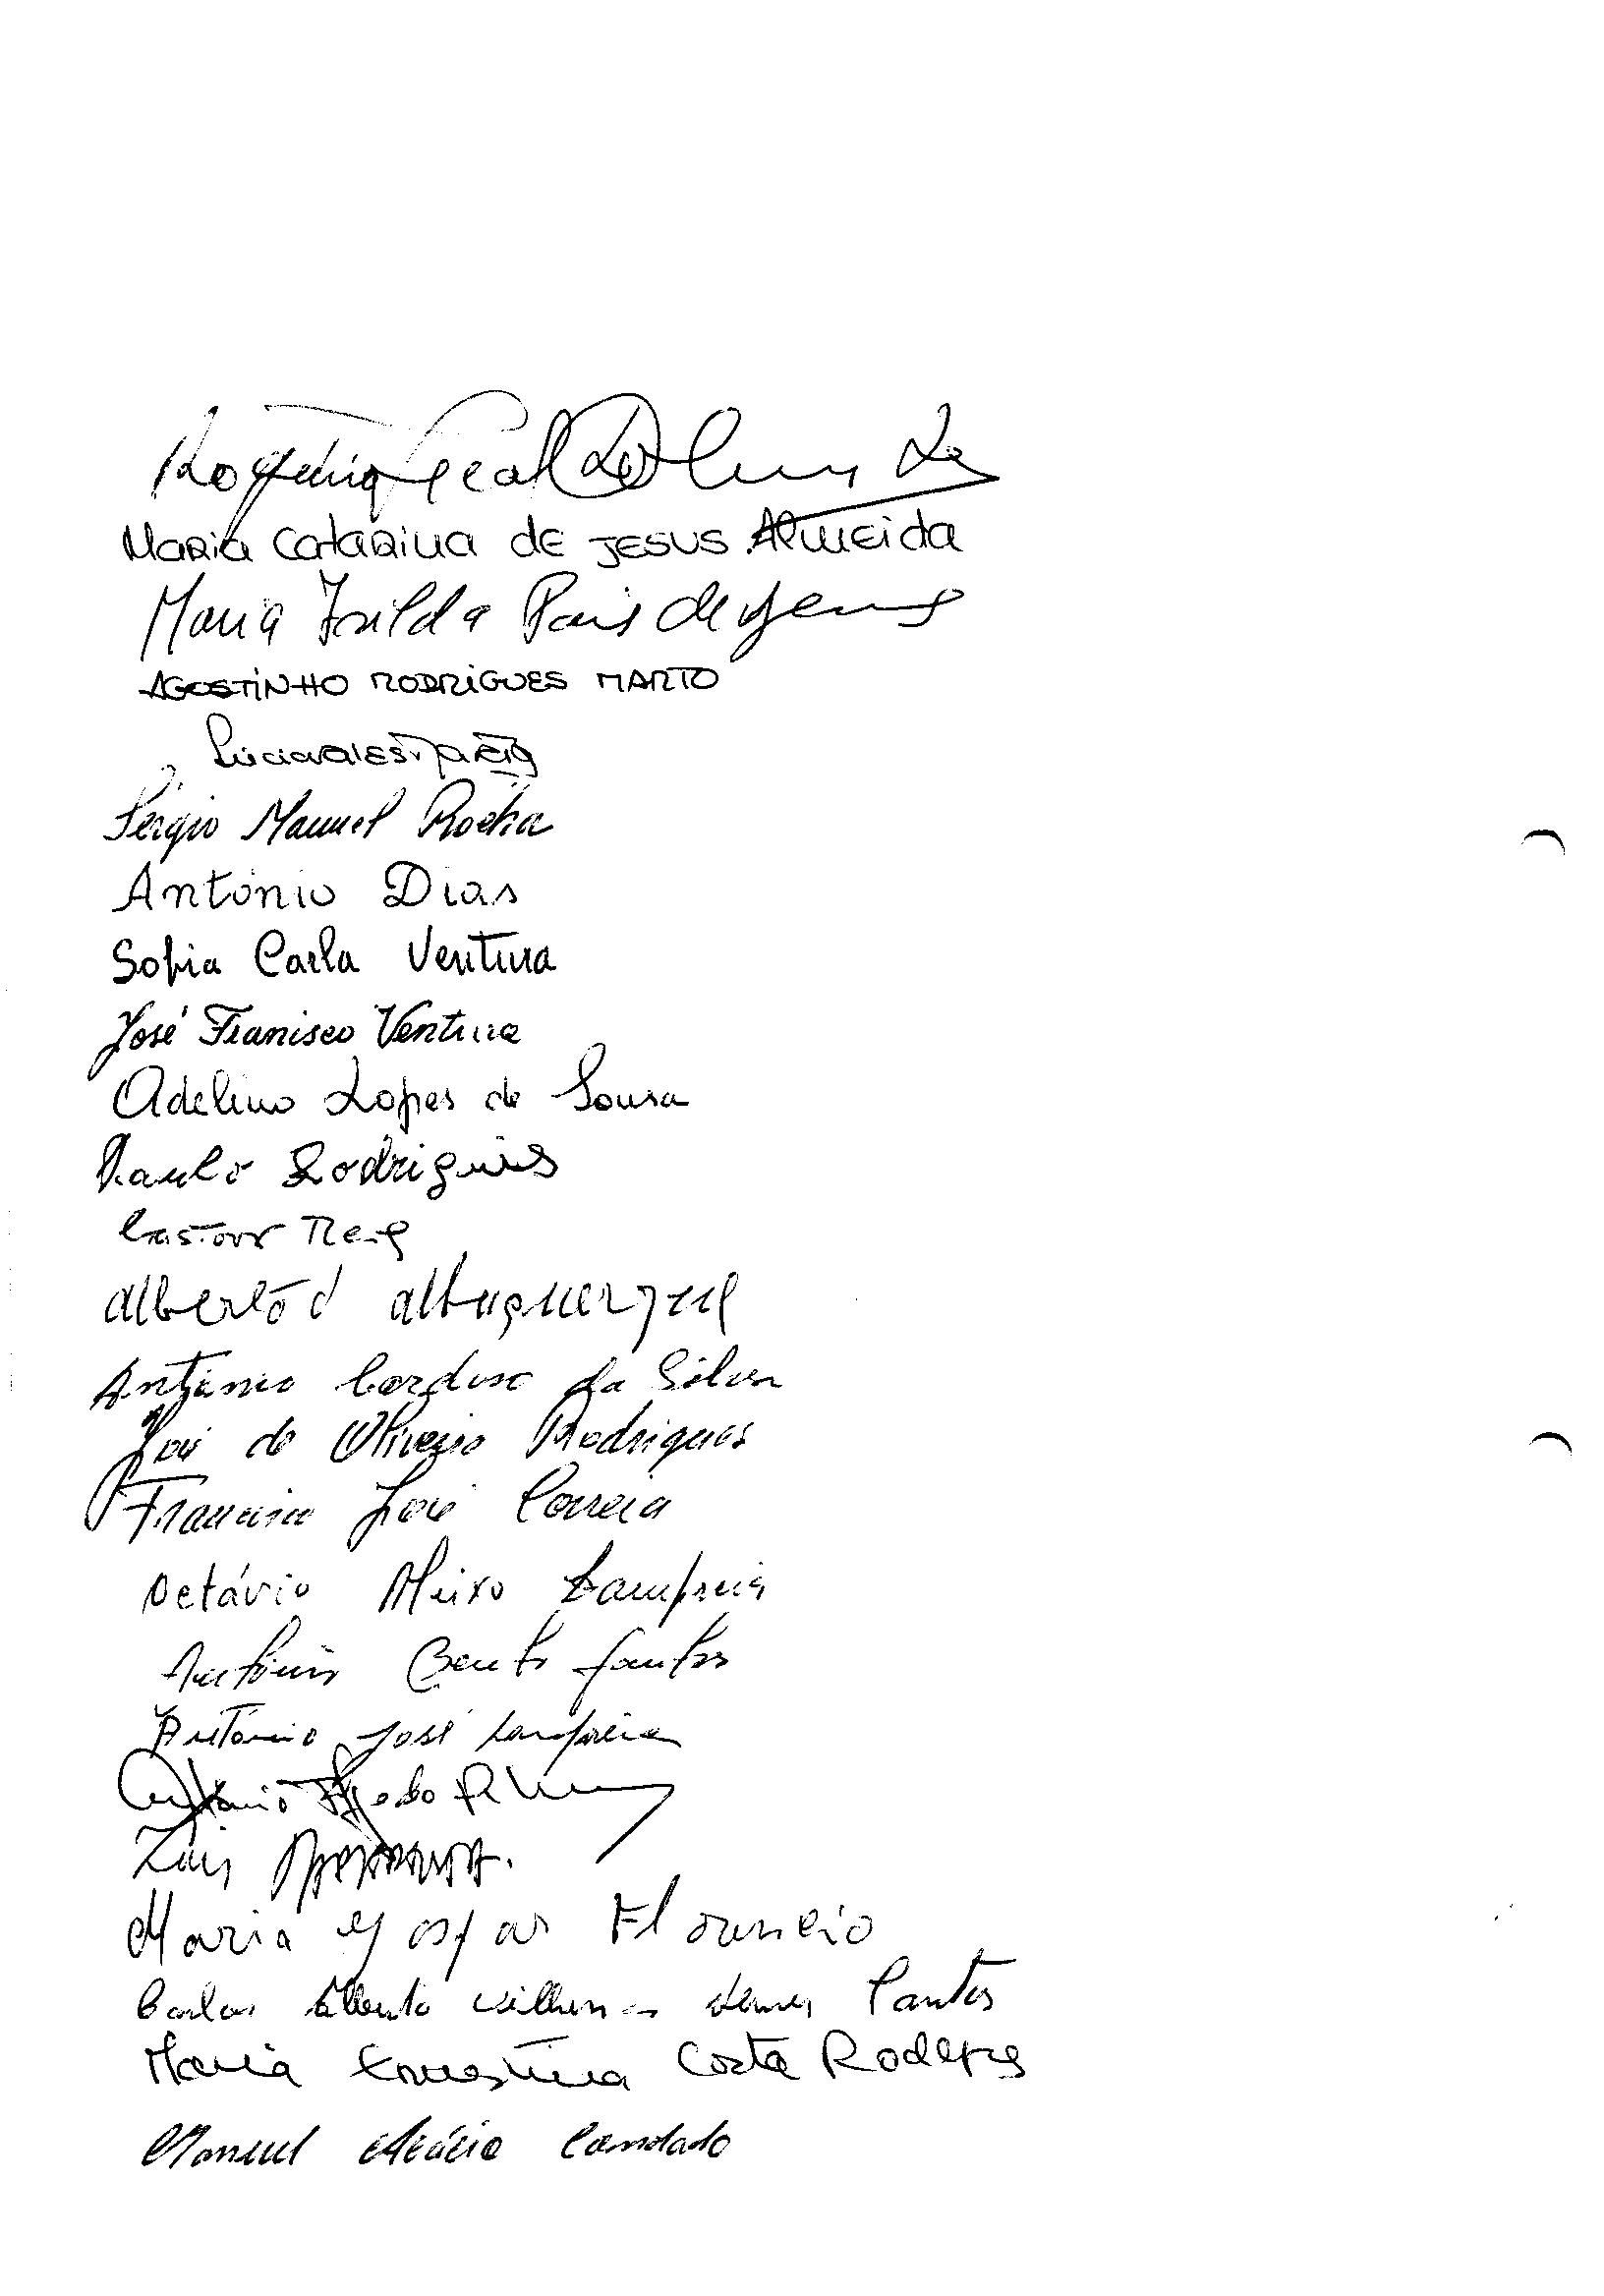 Rogério Leal de
Maria Catarina de Jesus Almeida
Maria Isilda Pais de Jesus
AGOSTINHO RODRIGUES MARTO
Lúcia
Sérgio Manuel Rocha
António Dias
Sofia Carla Ventura
José Franisco Ventura
Adelino Lopes de Sousa
Paulo Rodrigues
Castor Reis
Alberto d'Albuquerque
António Cardoso da Silva
José de Oliveira Rodrigues
Francisco José Correia
Octávio Aleixo Lampreia
António Bento Santos
António José Lampreia
António
Luis
Maria Gaspar Florencio
Carlos Alberto Vilhena Santos
Maria Ernestina Costa Rodrigues
Manuel Acácio Condado